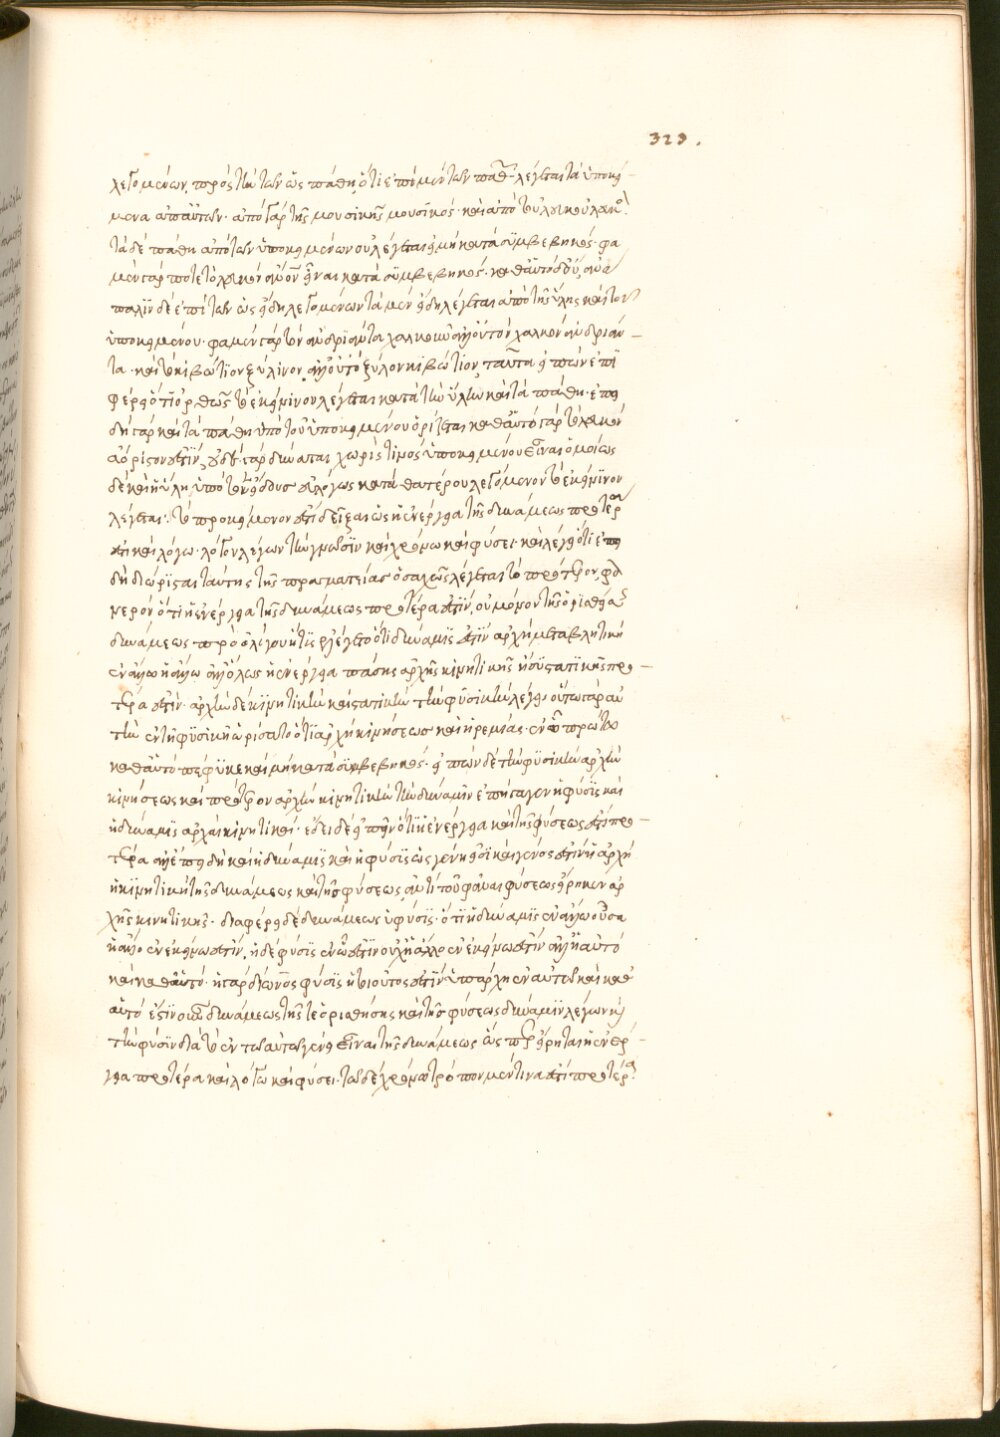 323.
λεγομένων πρὸς τὴν τῶν ὡς πάθη, ὅτι ἐπὶ μὲν τῶν παθῶν λέγεται τὰ ὑποκεί-
μενα ἀπ' αὐτῶν· ἀπὸ γὰρ τῆς μουσικῆς μουσικός· καὶ ἀπὸ τοῦ λευκοῦ λευκός·
τὰ δὲ πάθη ἀπὸ τῶν ὑποκειμένων οὐ λέγεται εἰ μὴ κατὰ συμβεβηκός· φα
μὲν γάρ ποτε τὸ λευκὸν εἶναι κατὰ συμβεβηκός· καθ' αὑτὸ δὲ
πάλιν δὲ ἐπὶ τῶν ὡς εἴδη λεγομένων τὰ μὲν εἴδη λέγεται ἀπὸ τῆς ὕλης καὶ τοῦ
ὑποκειμένου· φαμὲν γὰρ τὸν ἀνδριάντα χαλκοῦν ἀλλ' οὐ τὸν χαλκὸν ἀνδριάν-
τα· καὶ τὸ κιβώτιον ξύλινον, ἀλλ' οὐ τὸ ξύλον κιβώτιον, ταῦτα εἰπὼν ἐπι
φέρει ὅτι ὀρθῶς τὸ ἐκείνινον λέγεται κατὰ τὴν ὕλην καὶ τὰ πάθη· ἐπει
δὴ γὰρ καὶ τὰ πάθη ὑπὸ τοῦ ὑποκειμένου ὁρίζεται καθ' αὑτὸ γὰρ τὸ λευκὸν
ἀόριστόν ἐστιν, οὐδὲ γὰρ δύναται χωρίς τινος ὑποκειμένου εἶναι ὁμοίως
δὲ καὶ ἡ ὕλη ὑπὸ τοῦ εἴδους εὐλόγως κατὰ θατέρου λεγόμενον τὸ ἐκείνινον
λέγεται· τὸ προκείμενον ἐστι δεῖξαι ὡς ἡ ἐνέργεια τῆς δυνάμεως προτέρα
ἐστὶ καὶ λόγῳ· λόγον λέγων τὴν γνῶσιν καὶ χρόνῳ καὶ φύσει· καὶ λέγει ὅτι ἐπει
δὴ διώρισται ταύτης τῆς πραγματείας ὁσαχῶς λέγεται τὸ πρότερον, φα
νερὸν ὅτι ἡ ἐνέργεια τῆς δυνάμεως προτέρα ἐστίν, οὐ μόνον τῆς ὁρισθείσης
δυνάμεως πρὸ ὀλίγου ἥτις ἐλέγετο ὅτι δύναμίς ἐστιν ἀρχὴ μεταβλητικὴ
ἐν ἄλλῳ ἢ ἄλλῳ ἀλλ' ὅλως ἡ ἐνέργεια πάσης ἀρχῆς κινητικῆς ἢ στατικῆς προ-
τέρα ἐστίν· ἀρχὴν δὲ κινητικὴν καὶ στατικὴν τὴν φυσικὴν λέγει οὕτω γὰρ αὐ
τὴν ἐν τῇ φυσικῇ ὡρίσατο ὅτι ἀρχὴ κινήσεως καὶ ἠρεμίας· ἐν ᾧ πρώτῳ
καθ' αὑτὸ πέφυκε καὶ μὴ κατὰ συμβεβηκός· εἰπὼν δὲ τὴν φυσικὴν ἀρχὴν
κινήσεως καὶ πρότερον ἀρχὴν κινητικὴν τὴν δύναμιν ἐπήγαγεν ἡ φύσις καὶ
ἡ δύναμις ἀρχαὶ κινητικαί· ἔδει δὲ εἰπεῖν ὅτι ἡ ἐνέργεια καὶ τῆς φύσεως ἐστὶ προ-
τέρα ἀλλ' ἐπειδὴ καὶ ἡ δύναμις καὶ ἡ φύσις ὡς γένη εἰσὶ καὶ γένος ἐστὶν ἡ ἀρχὴ
ἡ κινητικὴ τῆς δυνάμεως καὶ τῆς φύσεως ἀντὶ τοῦ φάναι φύσεως εἴρηκεν ἀρ
χῆς κινητικῆς· διαφέρει δὲ δυνάμεως ἡ φύσις· ὅτι ἡ δύναμις ἐν ἄλλῳ οὖσα
ἢ ἄλλο ἐν ἐκείνῳ ἐστίν, ἡ δὲ φύσις ἐν ᾧ ἐστιν οὐχ ᾗ ἄλλο ἐν ἐκείνῳ ἐστὶν ἀλλ' ᾗ αὐτὸ
καὶ καθ' αὑτό· ἡ γὰρ δίωνος φύσις ἡ βιοῦντος ἐστὶν ὑπάρχει ἐν αὐτῷ καὶ καθ'
αὑτό ἔστιν οὖν δυνάμεως τῆς τε ὁρισθείσης καὶ τῆς φύσεως δύναμιν λέγων καὶ
τὴν φύσιν διὰ τὸ ἐν τῷ αὐτῷ γένει εἶναι τῆς δυνάμεως ὥσπερ εἴρηται ἡ ἐνέρ-
γεια προτέρα καὶ λόγῳ καὶ φύσει· τῷ δὲ χρόνῳ τρόπον μέν τινά ἐστι προτέρα